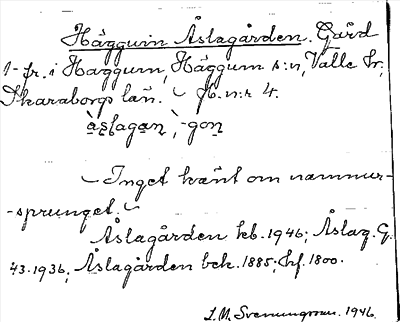 Häggum Åslagården. Gård
1 fr. i Häggum, Häggum s:n, Valle hr,
Skaraborgs län. jb. n:r 4.
àslagan, -gon
Inget känt om namnur-
-sprunget.
Åslagården kb. 1946; Åslag. G.
43. 1936; Åslagården bek. 1885; hf. 1800.
1946